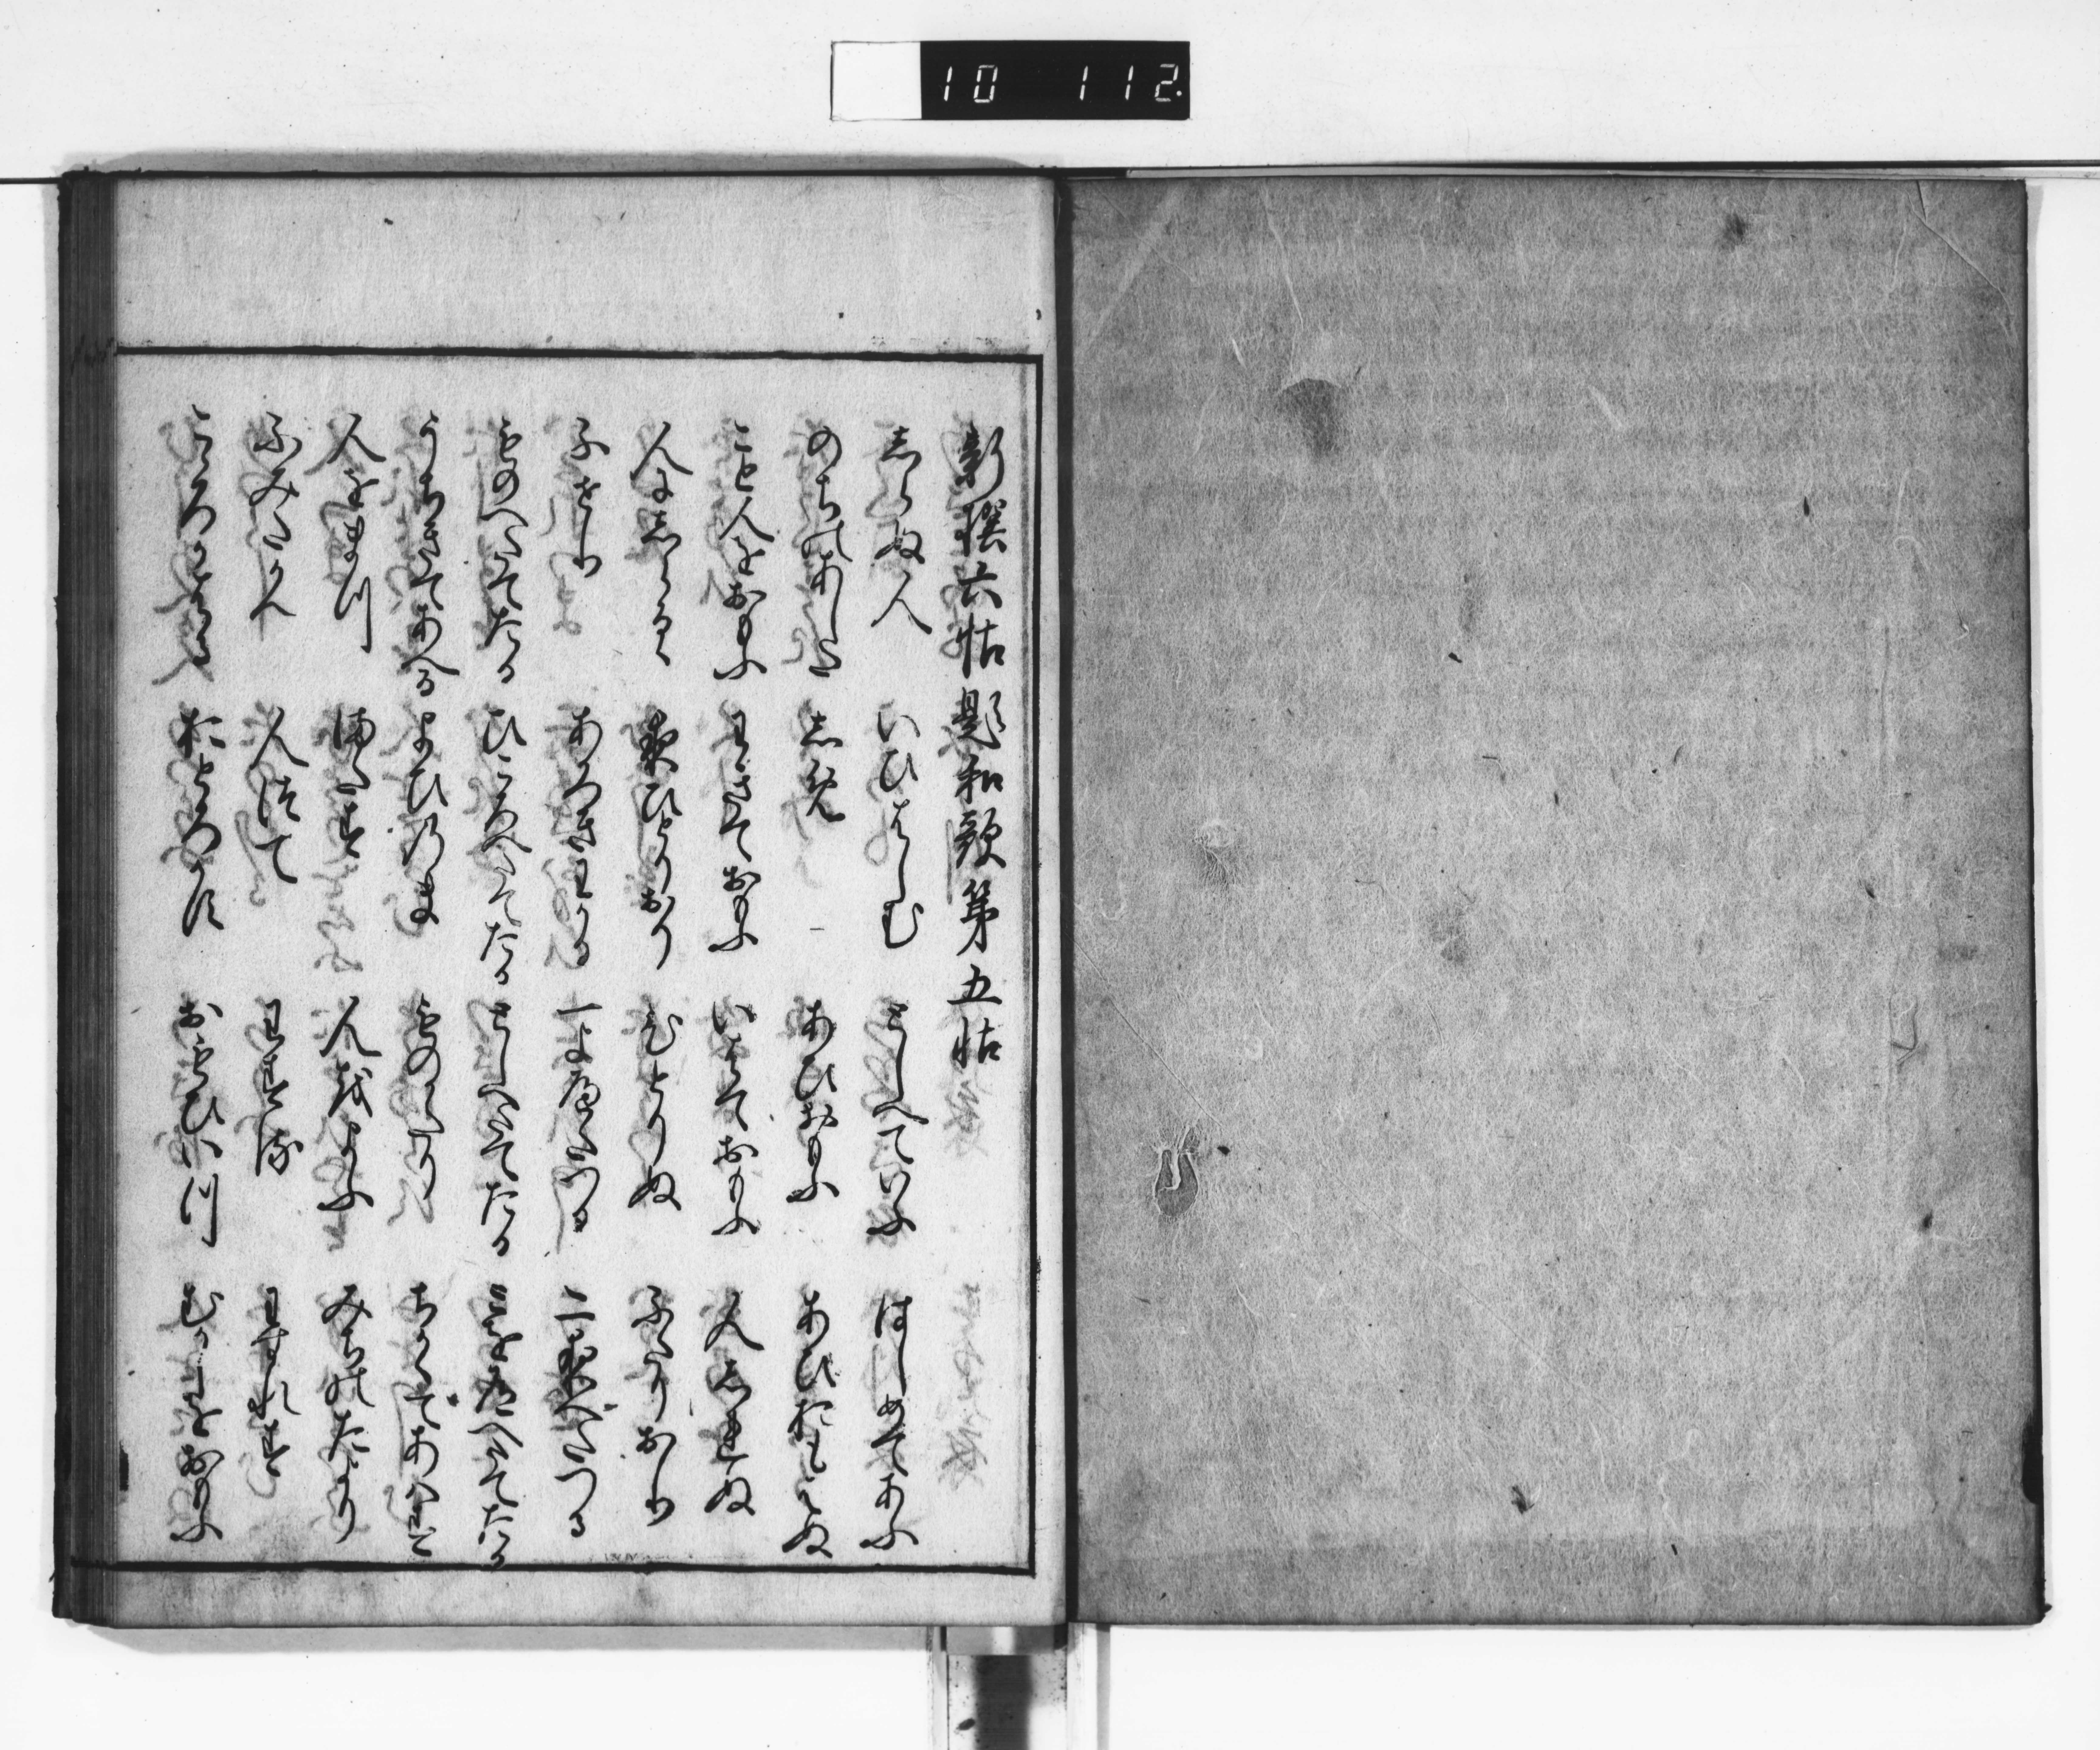 10 112.
新撰六帖題和歌第五帖
志らぬ人 いひはしむ としへていふ はしめてあふ
のちのあした 志免 あひおもふ あひおもはぬ
こと人をおもふ わきておもふ いはておもふ 人志れぬ
人に志らるゝ 夜ひとりおり ひとりぬ ふたりおり
ふせり あかつきにおくる 一よへたつる 二夜へたつる
ものへたてたる ひころへたてたる としへたてたる
うちきてあへる よひのま ものかたり ちかくてあはす
人をまつ またす 人をよふ みちのたより
ふみたかへ 人つて わする わすれす
こゝろかはる おとろかす おもひいつ むかしをおもふ